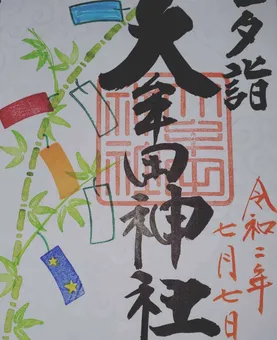 七夕詣
大牟田神社
令和二年
七月七日